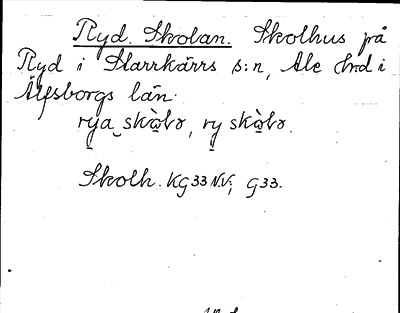 Ryd. Skolan. Skolhus på
Ryd i Starrkärrs s:n, Ale hrd i
Älfsborgs län.
Skolh. KG33 N.V.; G33.